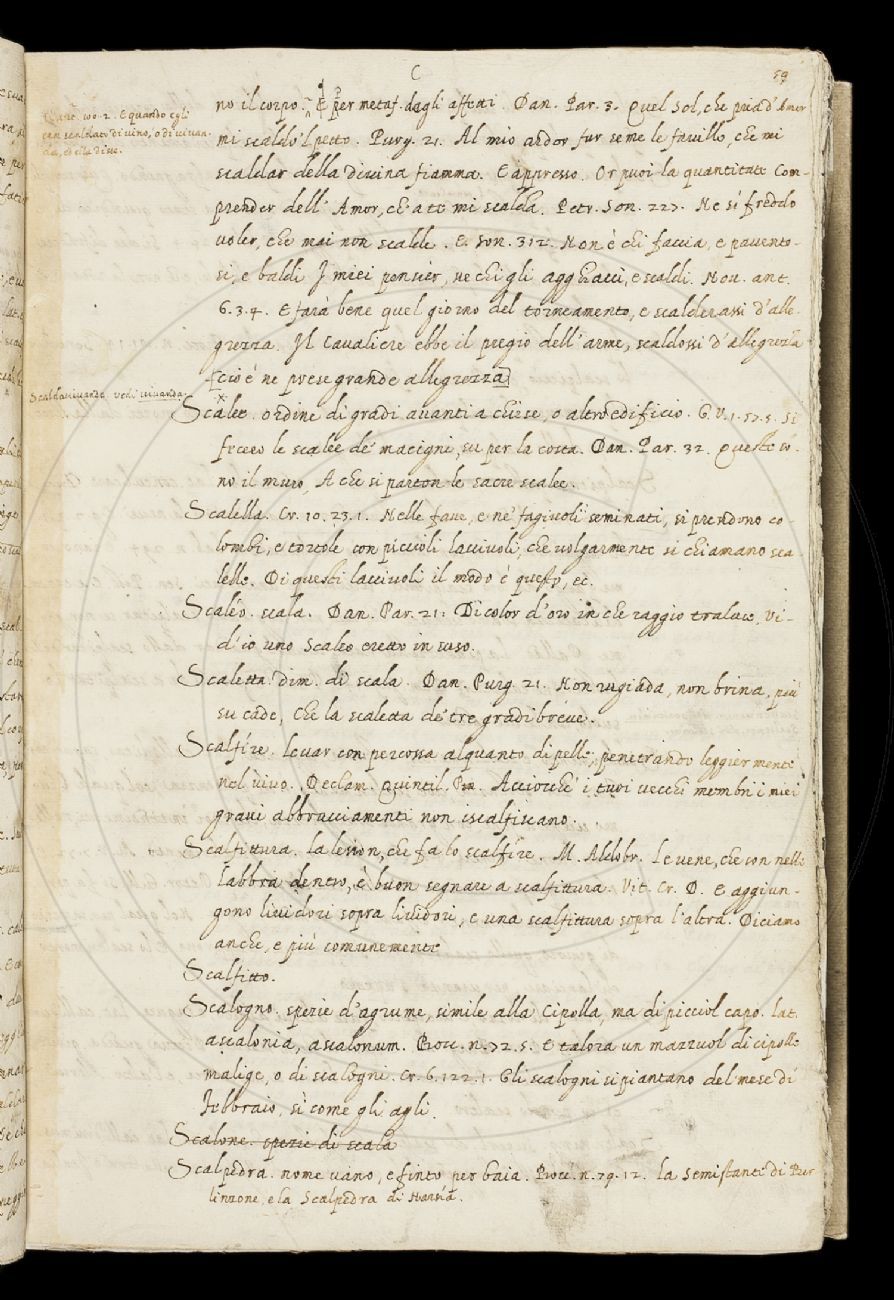 C
59
no il corpo. E per metaf. degli affeti. Dan. Par. 3. Quel Sol, che pria d'Amor
mi scaldò 'l petto. Purg. 21. Al mio ardor fur seme le faville, che mi
scaldar della divina fiamma. E appresso. Or puoi la quantitate Com-
prender dell'Amor, ch'a te mi scalda. Petr. Son. 227. Ne sì freddo
voler, che mai non scalde. E Son. 312. Non è chi faccia, e pavento-
si, e baldi I miei pensier, ne chi gli agghiacci, e scaldi. Nov. ant.
6.3.4. E farà bene quel giorno del torneamento, e scalderassi d'alle-
grezza. Il Cavaliere ebbe il pregio dell'arme, scaldossi d'allegrezza
[cioè ne prese grande allegrezza]
Scalee. ordine di gradi avanti a chiese, o altro edificio. G. V. 1. 57. 5. Si
fecero le scalee de' macigni, su per la costa. Dan. Par. 32. Queste so-
no il muro, A che si parton le sacre scalee.
Scalella. Cr. 10. 23. 1. Nelle fave, e ne' fagiuoli seminati, si prendono co-
lombi, e tortole con piccioli lacciuoli, che volgarmente si chiamano sca-
lelle. Di questi lacciuoli il modo è questo, ec.
Scaléo. scala. Dan. Par. 21. Di color d'oro in che raggio traluce, Vi-
d'io uno Scaleo eretto in suso.
Scaletta. dim. di scala. Dan. Purg. 21. Non rugiada, non brina, più
su cade, Che la scaletta de' tre gradi breve.
Scalfire. levar con percossa alquanto di pelle, penetrando leggiermente
nel vivo. Declam. Quintil. Acciocchè i tuoi vecchi membri i miei
gravi abbracciamenti non iscalfiscano.
Scalfittura. la lesion, che fa lo scalfire. M. Aldobr. Le vene, che son nelle
labbra dentro, è buon segnare a scalfittura. Vit. Cr. D. E aggiun-
gono lividori sopra lividori, e una scalfittura sopra l'altra. Diciamo
anche, e più comunemente
Scalfitto.
Scalogno. spezie d'agrume, simile alla Cipolla, ma di picciol capo. lat.
ascalonia, ascalonum. Bocc. n. 72. 5. E talora un mazzuol di cipolle
malige, o di scalogni. Cr. 6. 122. 1. Gli scalogni si piantano del mese di
Febbraio, sì come gli agli.
Scalone. spezie di scala
Scalpedra. nome vano, e finto per baia. Bocc. n. 79. 12. la Semistante di Ber
linzone, e la Scalpedra di Narsia.
E quando egli
scaldato di vino, o di vivan-
da, ed ella disse.
Scaldavivande. vedi vivanda.